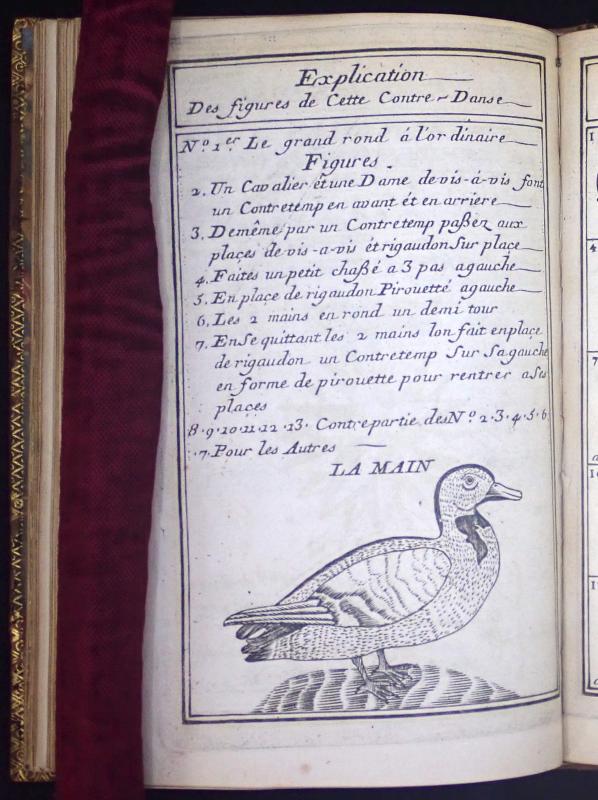 Explication
Des figures de Cette Contre-Danse
No. 1er Le grand rond á l'ordinaire
Figures.
2. Un Cavalier ét une Dame de vis-á-vis font
un Contretemp en avant ét en arriere
3. De même par un Contretemp paßez aux
plaçes de vis-a-vis ét rigaudon Sur place
4. Faites un petit chaßé a 3 pas agauche
5. En place de rigaudon Pirouetté agauche
6. Les 2 mains en rond un demi tour
7. En Se quittant les 2 mains lon fait en plaçe
de rigaudon un Contretemp Sur Sa gauche
en forme de pirouette pour rentrer a Ses
plaçes
8. 9. 10. 11. 12. 13. Contre partie des No. 2. 3. 4. 5. 6.
. 7. Pour les Autres
LA MAIN
1
4
7
1